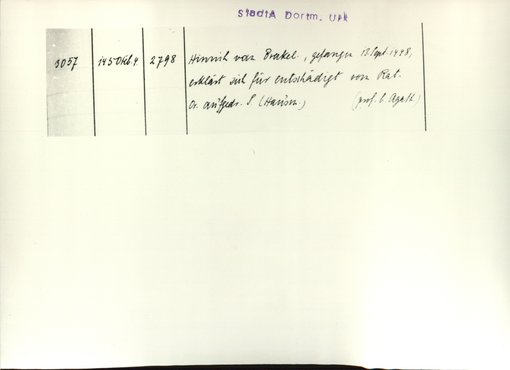 StadtA Dortm. Urk
3057 1450 Okt 4 2798 Hinrich van Brakel, gefangen 13 Sept. 1448,
erklärt sich für entschädigt vom Rat.
Or. aufgedr. S. (Hausm.) (prof. b. Agath.)